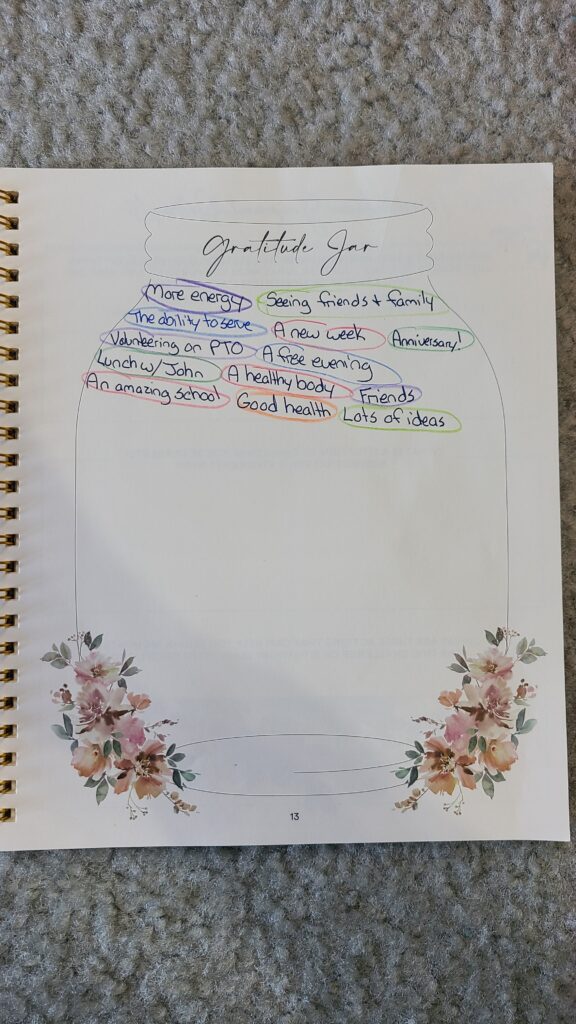 Gratitude Jar
More energy Seeing friends + family
The ability to serve A new week Anniversary!
Volunteering on PTO A free evening
Lunch w/ John A healthy body Friends
An amazing school Good health Lots of ideas
13